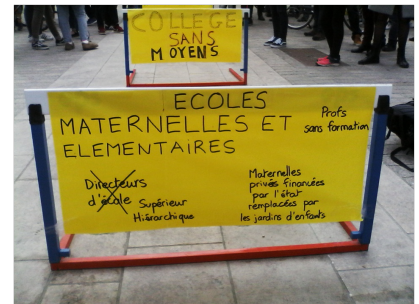 COLLEGE
SANS
MOYENS
ECOLES
MATERNELLES ET
ELEMENTAIRES
Profs
sans formation
Directeurs
d'école Supérieur
Hiérarchique
Maternelles
privées financées
par l'état
remplacées par
les jardins d'enfants